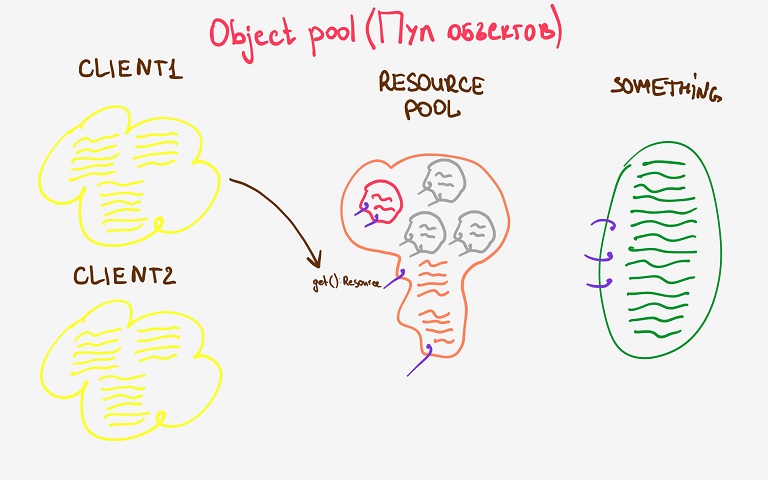 Object pool (Пул объектов)
CLIENT1
RESOURCE
POOL
SOMETHING
get(): Resource
CLIENT2